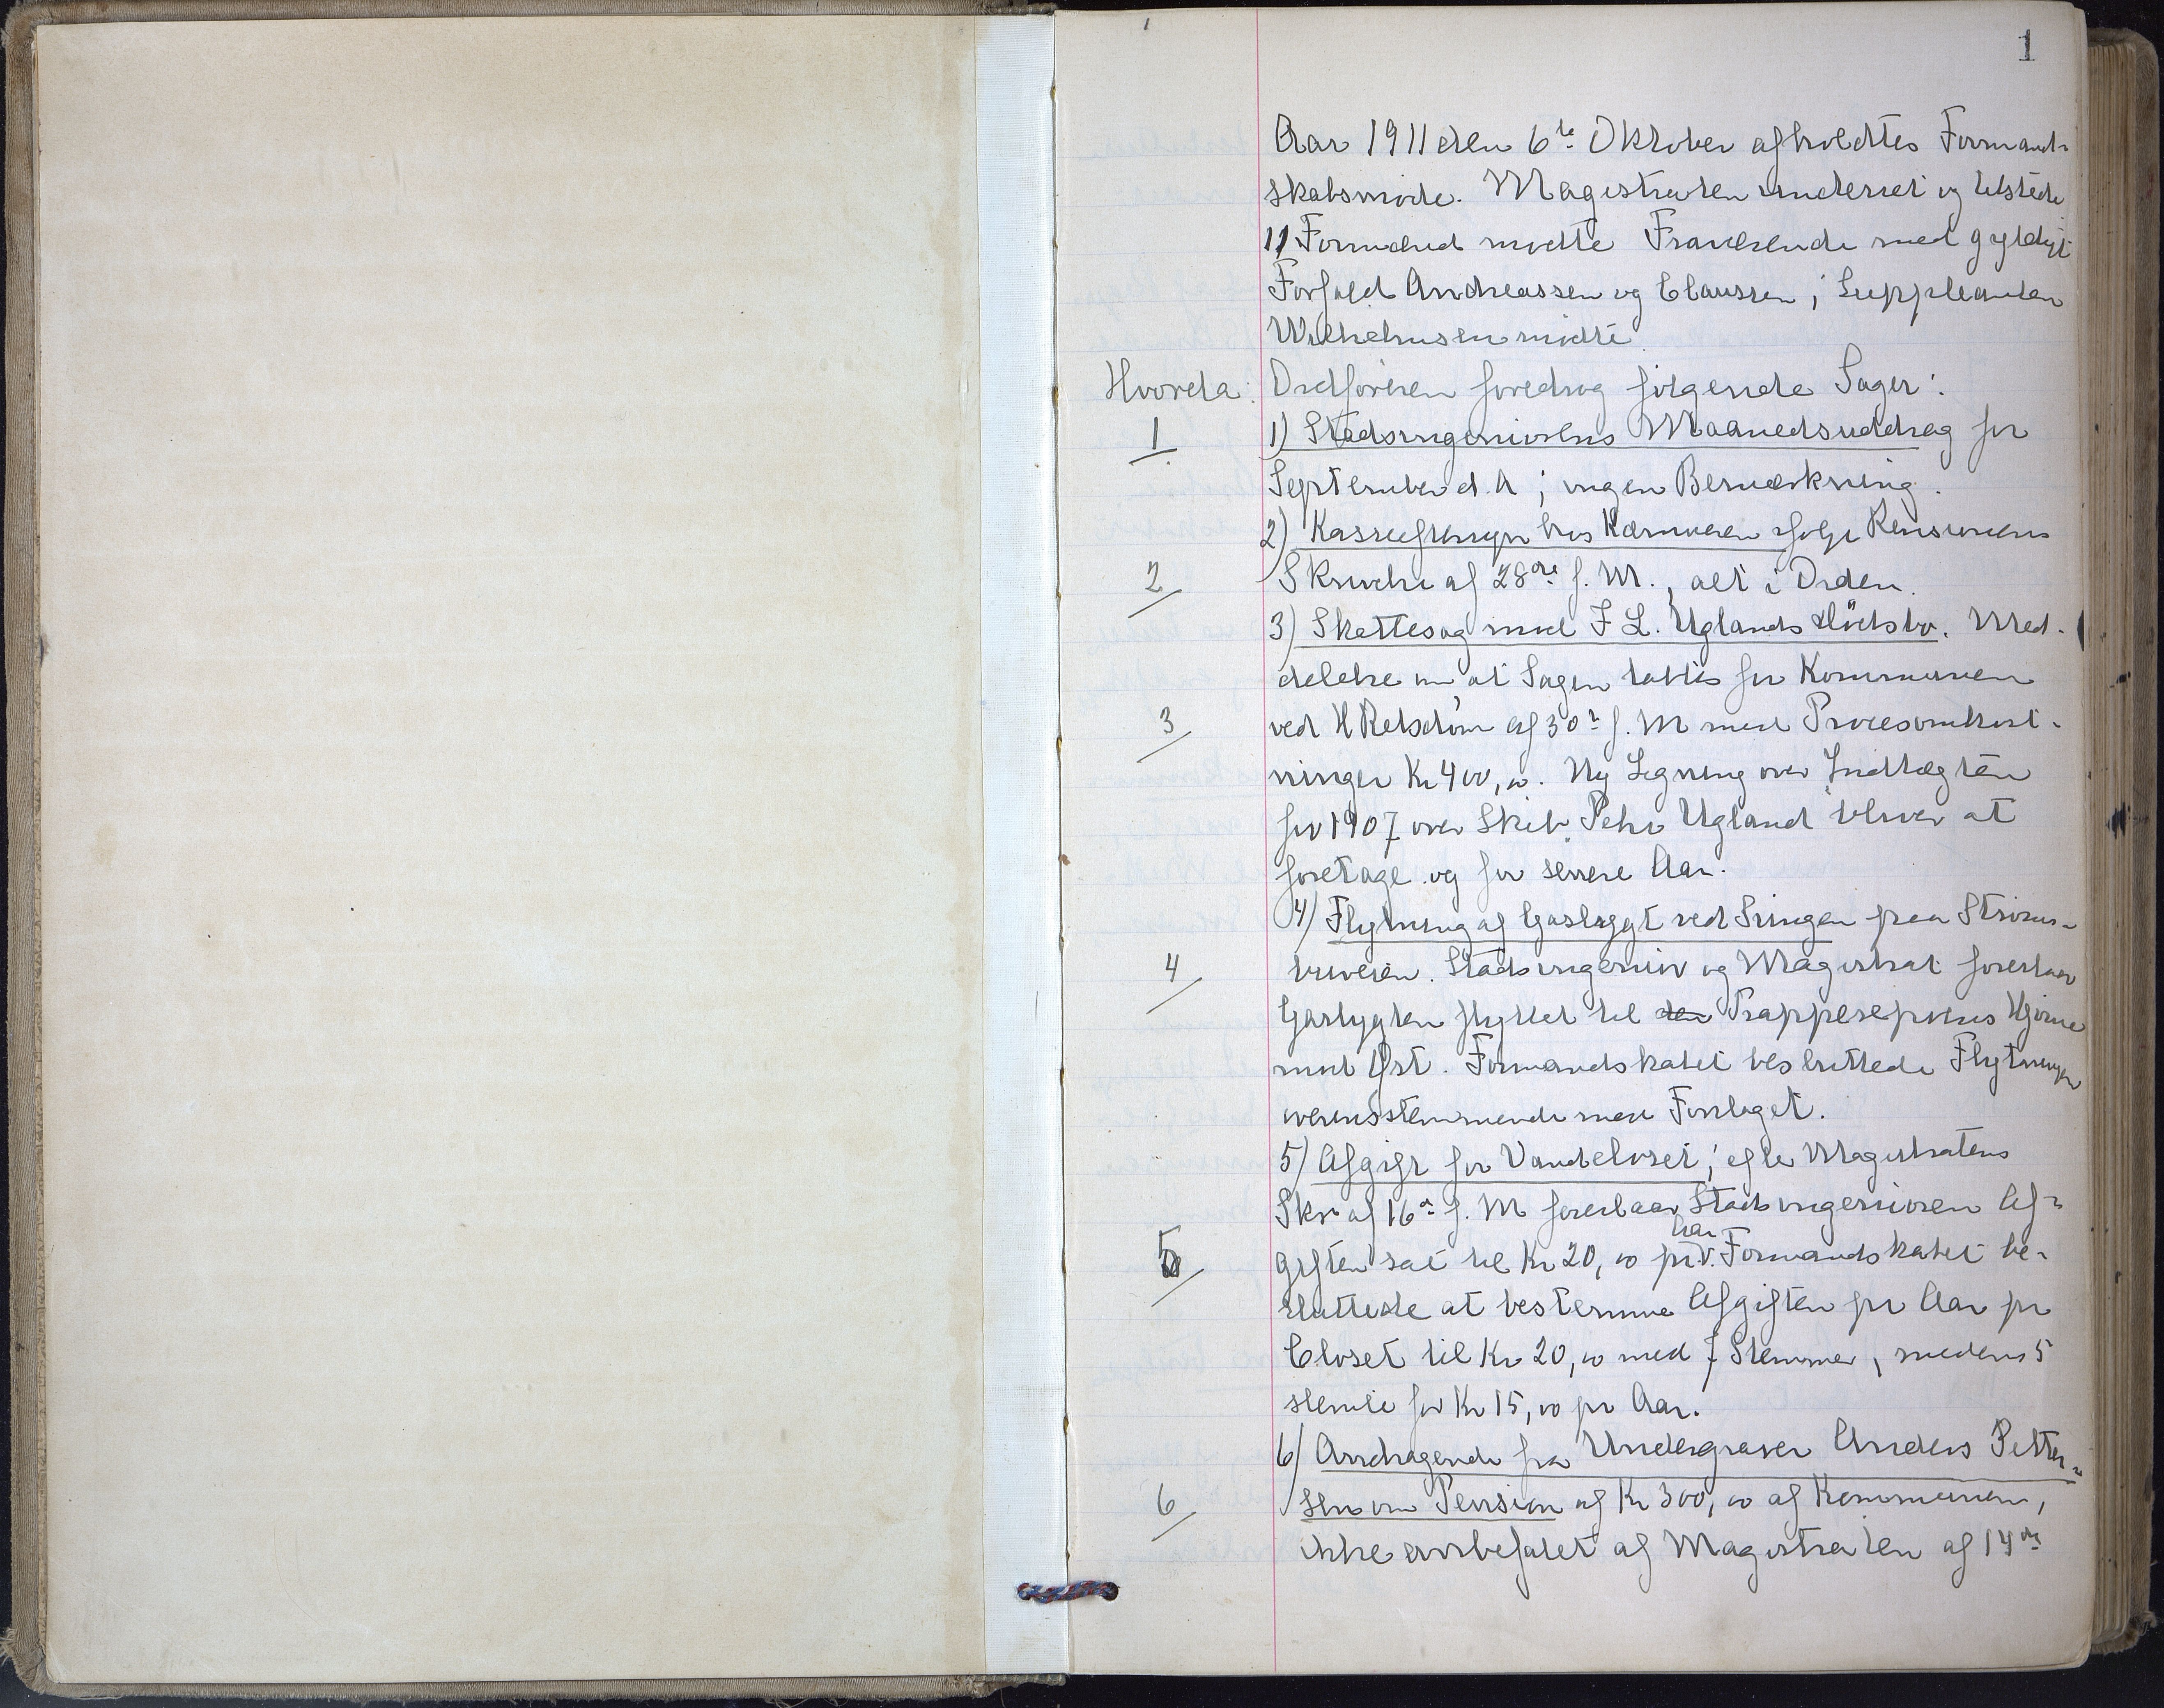 1
Aar 1911 den 6te Oktober afholdtes Formand-
skabsmøde. Magistraten underret og tilstede
11 Formænd mødte Fraværende med gyldigt
Forfald Andreassen og Claussen; Suppleanten
Wilhelmsen mødte.
Hvorda: Ordføreren foredrog følgende Sager:
1 1) Stadsingeniørens Maanedsuddrag for
September d. A; ingen Bemærkning.
2) Kasseeftersyn hos Kæmneren ifølge Revisorens
2 Skrivelse af 28de f. M., alt i Orden.
3) Skattesag mod F L. Uglands Dödsbo. Med-
delelse om at Sagen tabtes for Kommunen
3 ved HRetsdom af 30' f. M med Procesomkost-
ninger Kr 400,00. Ny Ligning over Indtægten
for 1907 over Skib "Pehr Ugland" bliver at
foretage og for senere Aar.
4) Flytning af Gaslygt ved Svingen paa Strøms-
4 buveien. Stadsingeniør og Magistrat foreslaar
Gaslygten flyttet til den Trappesepølens Hjørne
mod Øst. Formandskabet besluttede Flytningen
overensstemmende med Forslaget.
5) Afgift for Vandcloset; efter Magistratens
Skr. af 16de f. M foreslaar Stadsingeniøren Af-
Aar
5 giften sat til Kr 20,00 pr. v. Formandskabet be-
sluttede at bestemme Afgiften pr Aar pr
Closet til Kr 20,00 med 7 Stemmer, medens 5
stemte for Kr 15,00 pr Aar.
6) Andragende fra Undergraver Anders Petter-
6 sen om Pension af Kr 300,00 af Kommunen,
ikke anbefalet af Magistraten af 14de